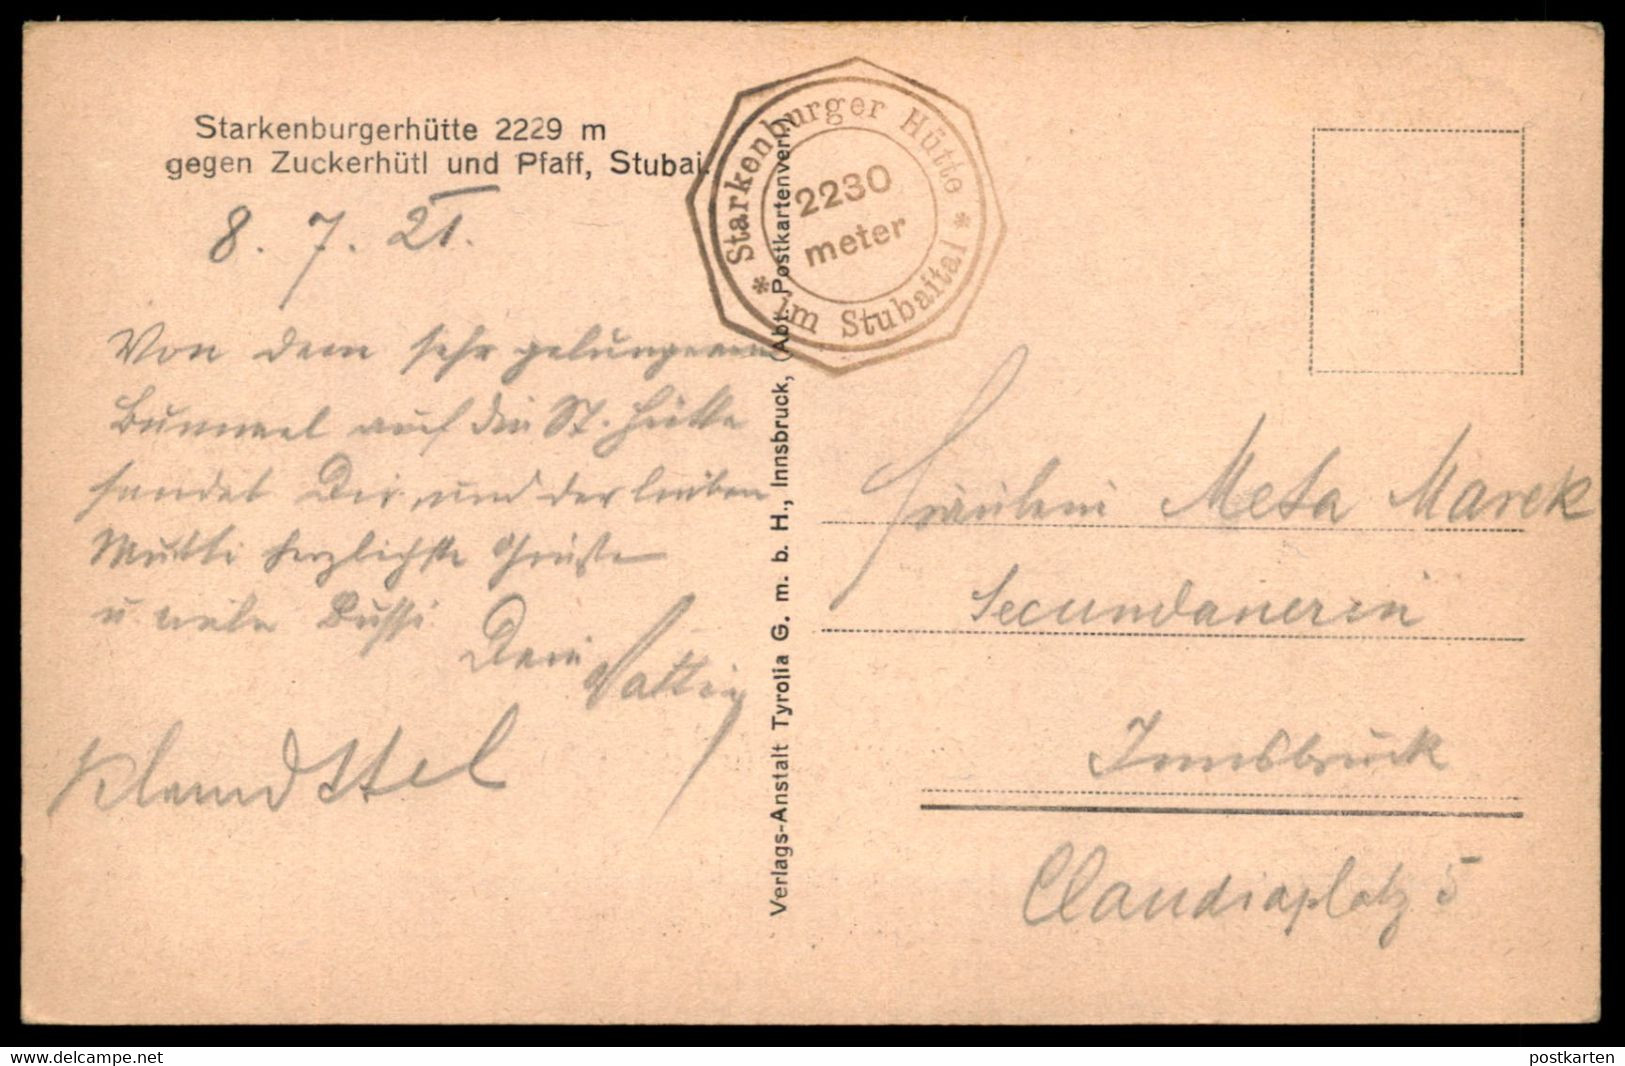 Starkenburgerhütte 2229 m
gegen Zuckerhütl und Pfaff, Stubai.
8. 7. 21.
Von dem sehr gelungenen
Bummel auf die St. Hütte
sendet Dir und der lieben
Mutti herzlichste Grüße
u viele Bussi
Dein Vattiy
Starkenburger Hütte
2230
meter
* im Stubaital *
Verlags-Anstalt Tyrolia G. m. b. H., Innsbruck, (Abt. Postkartenverlag)
Fräulein Meta Marek
Secundanerin
Innsbruck
Claudiaplatz 5
postkarten